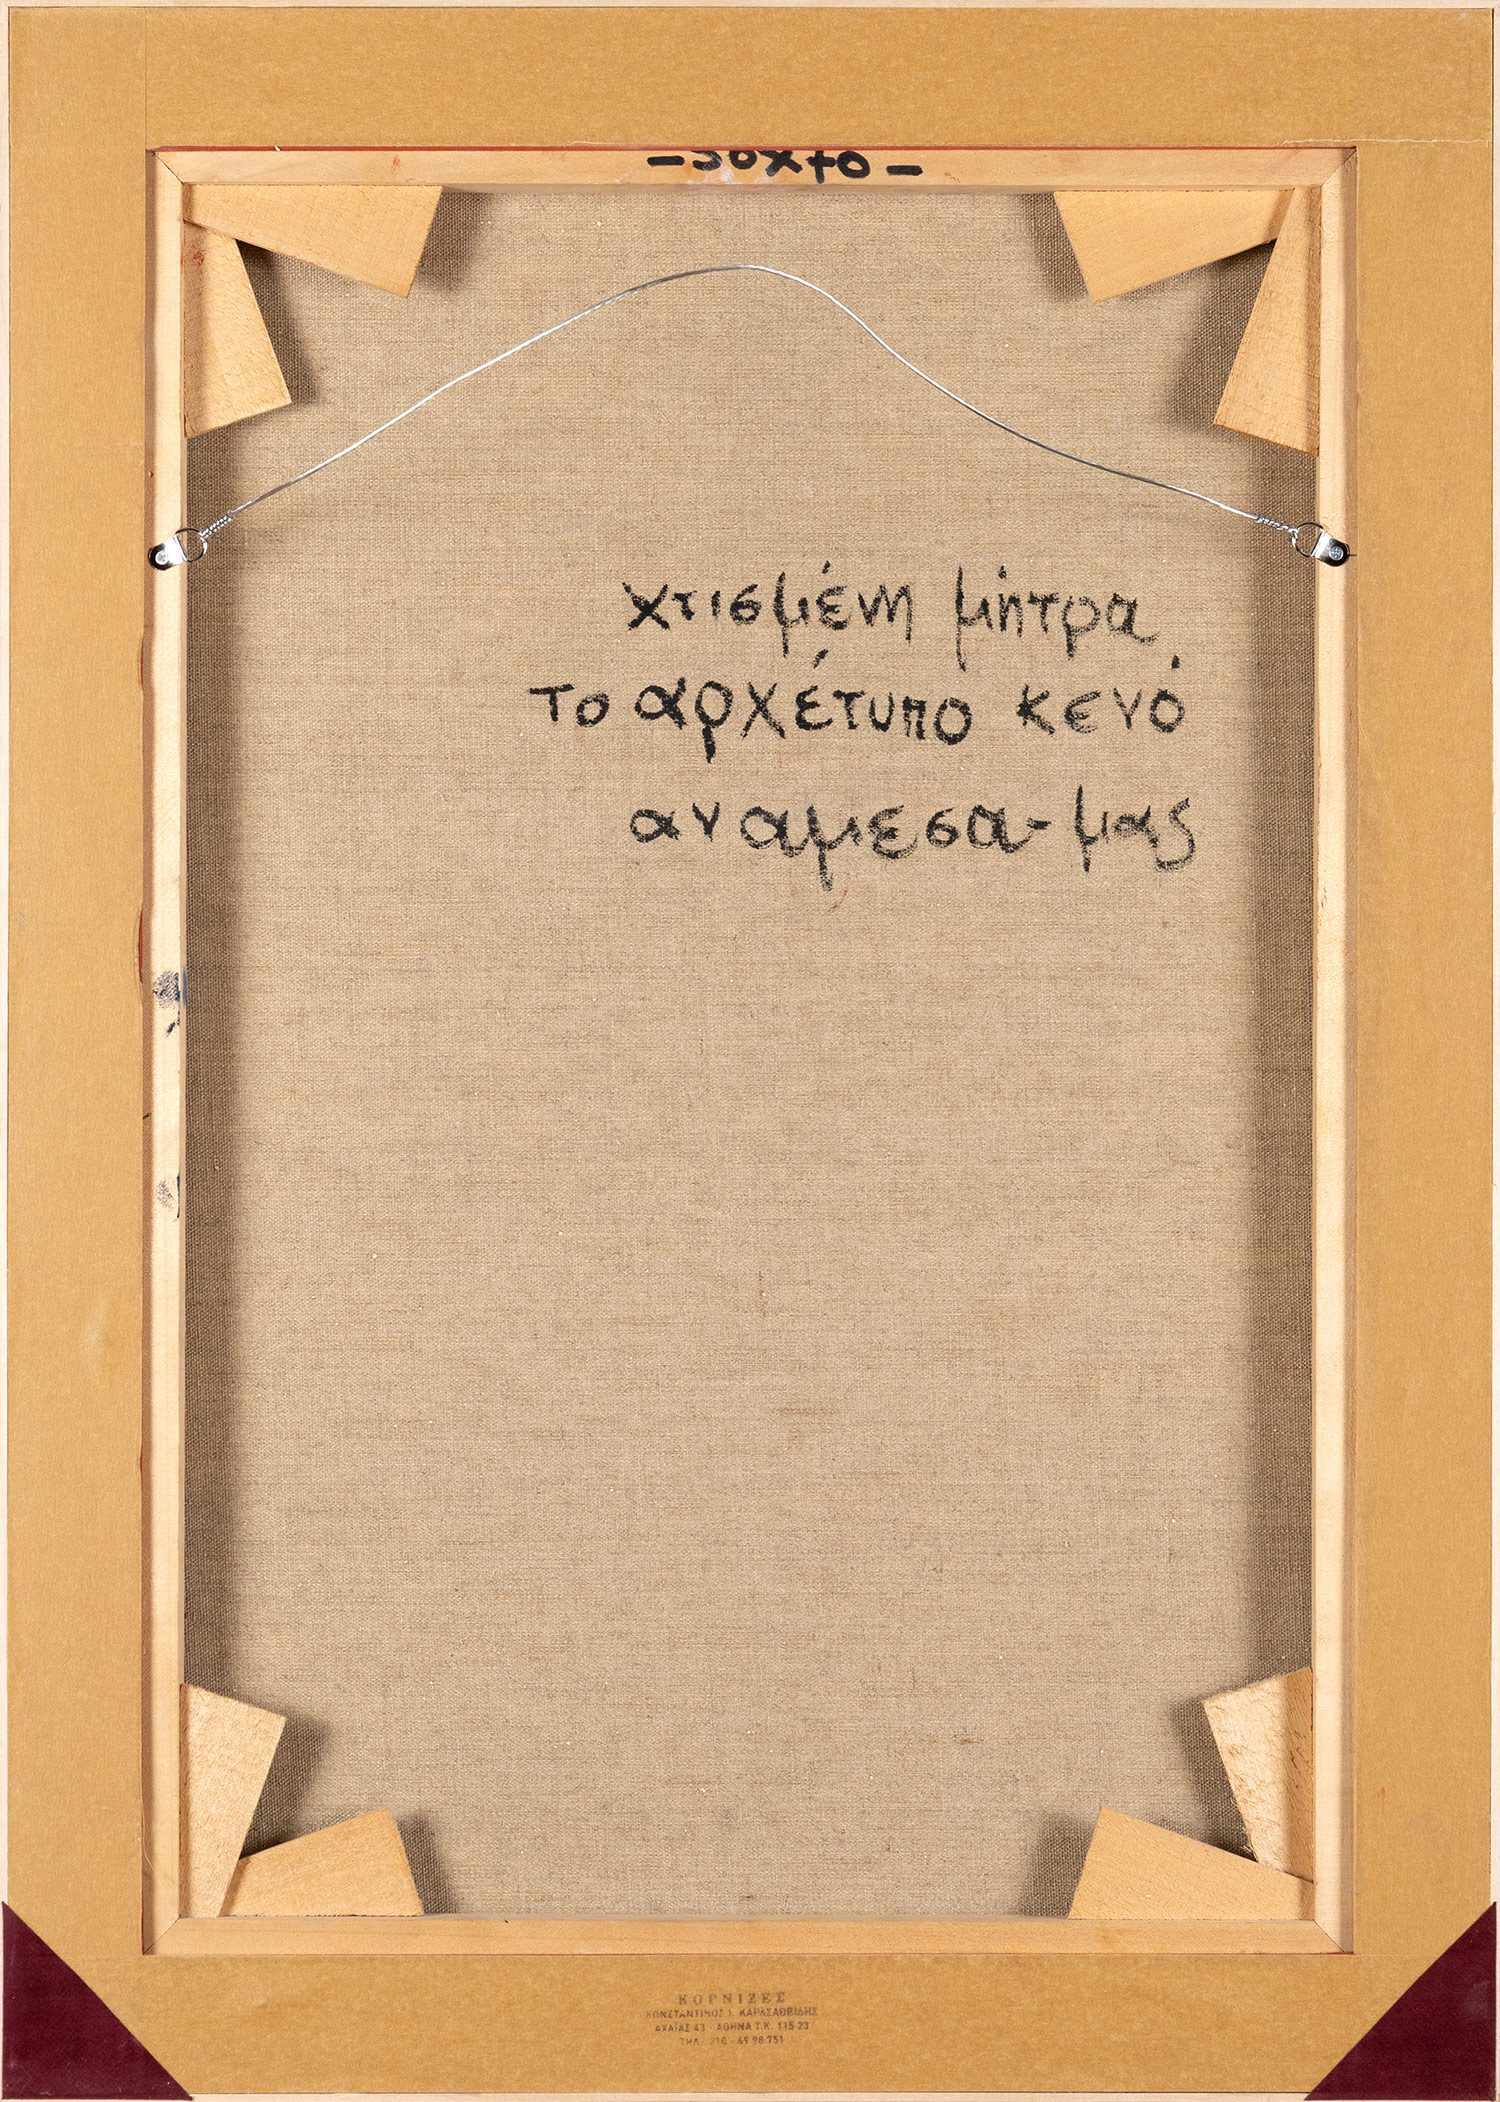 χτισμένη μήτρα
το αρχέτυπο κενό
αναμεσα-μας
ΚΟΡΝΙΖΕΣ
ΚΩΝΣΤΑΝΤΙΝΟΣ Ι.
ΑΧΑΪΑΣ 43 - ΑΘΗΝΑ Τ.Κ. 115 23
ΤΗΛ. 210 - 69 98 751